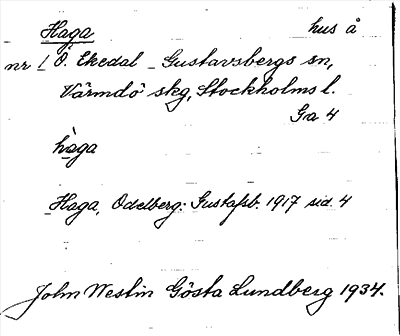 Haga hus å
nr 1 Ö. Ekedal - Gustavsbergs sn,
Värmdö skg, Stockholms l.
Ga 4
hàga
Haga, Odelberg: Gustafsb. 1917 sid. 4
John Westin Gösta Lundberg 1934.